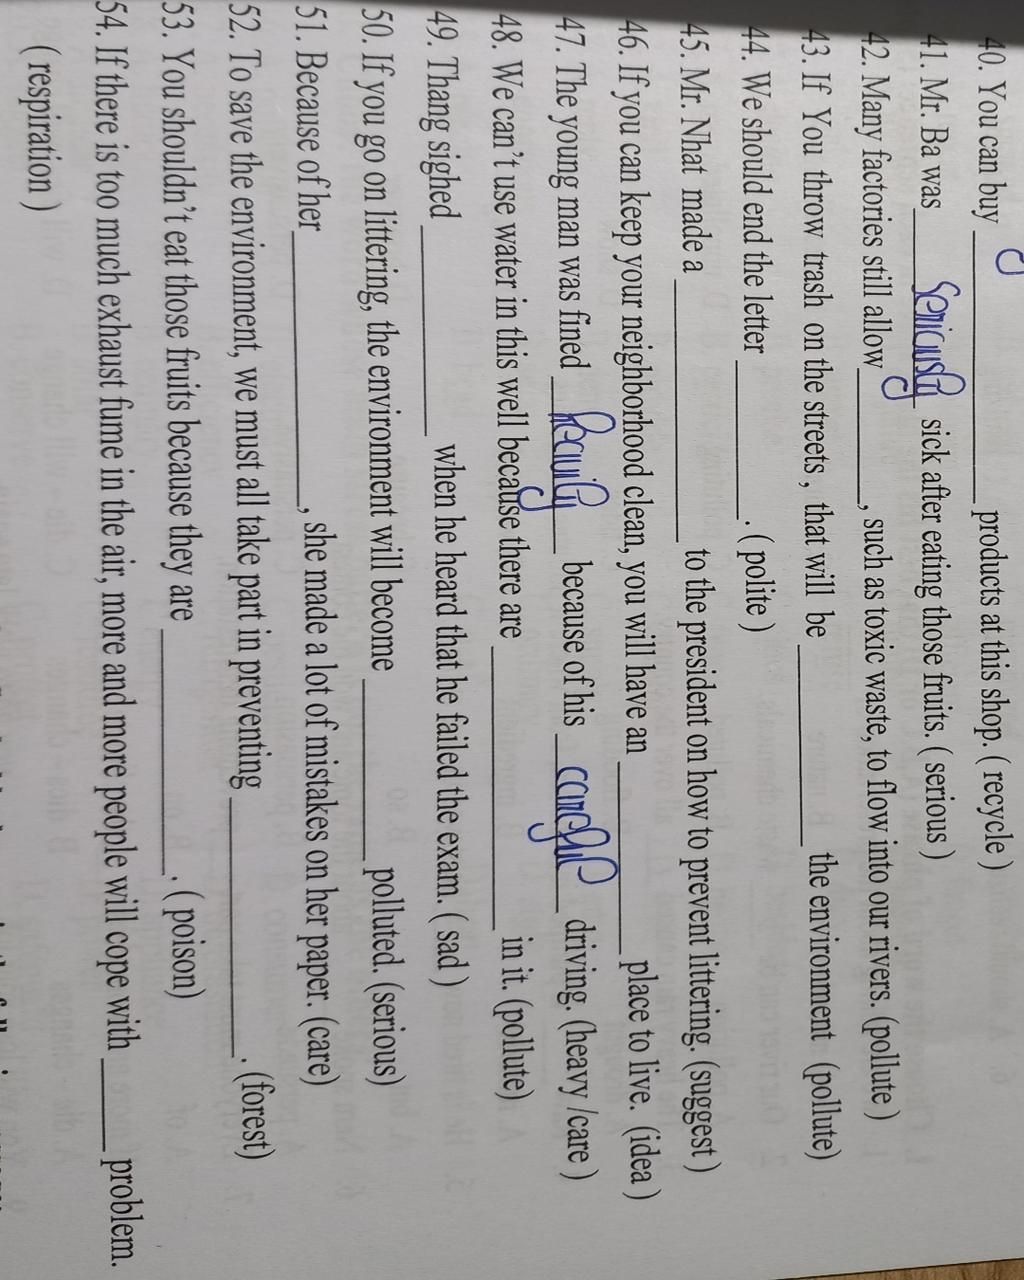 40. You can buy ____________ products at this shop. ( recycle )
41. Mr. Ba was ____ seriously ____ sick after eating those fruits. ( serious )
42. Many factories still allow ________, such as toxic waste, to flow into our rivers. (pollute )
43. If You throw trash on the streets , that will be ____________ the environment (pollute)
44. We should end the letter __________. ( polite )
45. Mr. Nhat made a ______________ to the president on how to prevent littering. (suggest )
46. If you can keep your neighborhood clean, you will have an __________ place to live. (idea )
47. The young man was fined __ heavily __ because of his __ careful __ driving. (heavy /care )
48. We can't use water in this well because there are ______________ in it. (pollute)
49. Thang sighed ____________ when he heard that he failed the exam. ( sad )
50. If you go on littering, the environment will become __________ polluted. (serious)
51. Because of her ______________, she made a lot of mistakes on her paper. (care)
52. To save the environment, we must all take part in preventing ______________. (forest)
53. You shouldn't eat those fruits because they are ______________. ( poison)
54. If there is too much exhaust fume in the air, more and more people will cope with _____ problem.
( respiration )